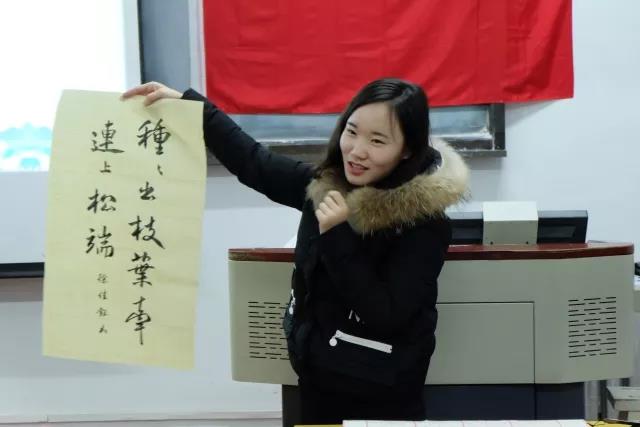 種〻出枝葉牽
連上松端
徐佳